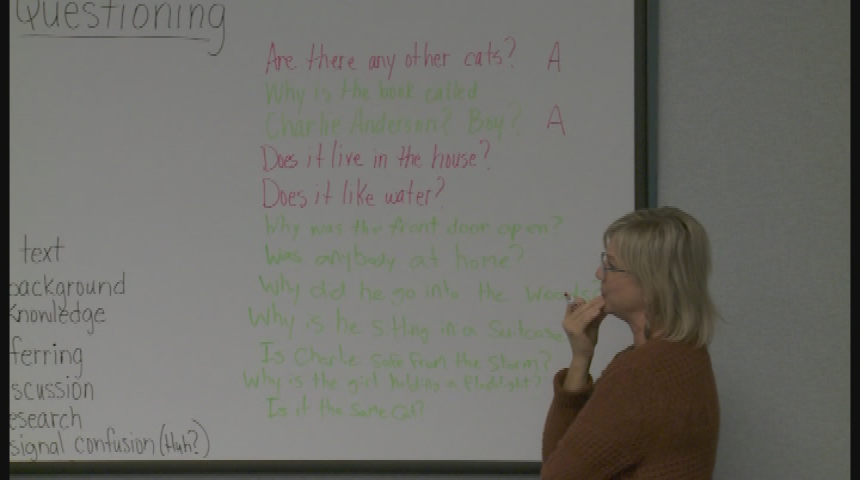 Questioning
Are there any other cats? A
Why is the book called
Charlie Anderson? Boy? A
Does it live in the house?
Does it like water?
Why was the front door open?
Was anybody at home?
Why did he go into the woods?
Why is he sitting in a Suitcase
Is Charlie safe from the storm?
Why is the girl holding a flashlight?
Is it the same cat?
text
background
knowledge
ferring
scussion
esearch
signal confusion (Huh?)